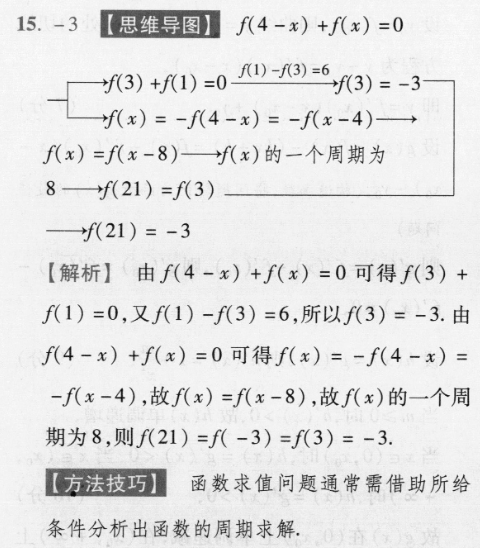 15. -3 【思维导图】 f(4-x)+f(x)=0
→f(3)+f(1)=0 f(1)-f(3)=6→f(3)=-3
→f(x)=-f(4-x)=-f(x-4)→
f(x)=f(x-8)→f(x)的一个周期为
8→f(21)=f(3)
→f(21)=-3
【解析】 由f(4-x)+f(x)=0可得f(3)+
f(1)=0,又f(1)-f(3)=6,所以f(3)=-3.由
f(4-x)+f(x)=0可得f(x)=-f(4-x)=
-f(x-4),故f(x)=f(x-8),故f(x)的一个周
期为8,则f(21)=f(-3)=f(3)=-3.
【方法技巧】 函数求值问题通常需借助所给
条件分析出函数的周期求解.